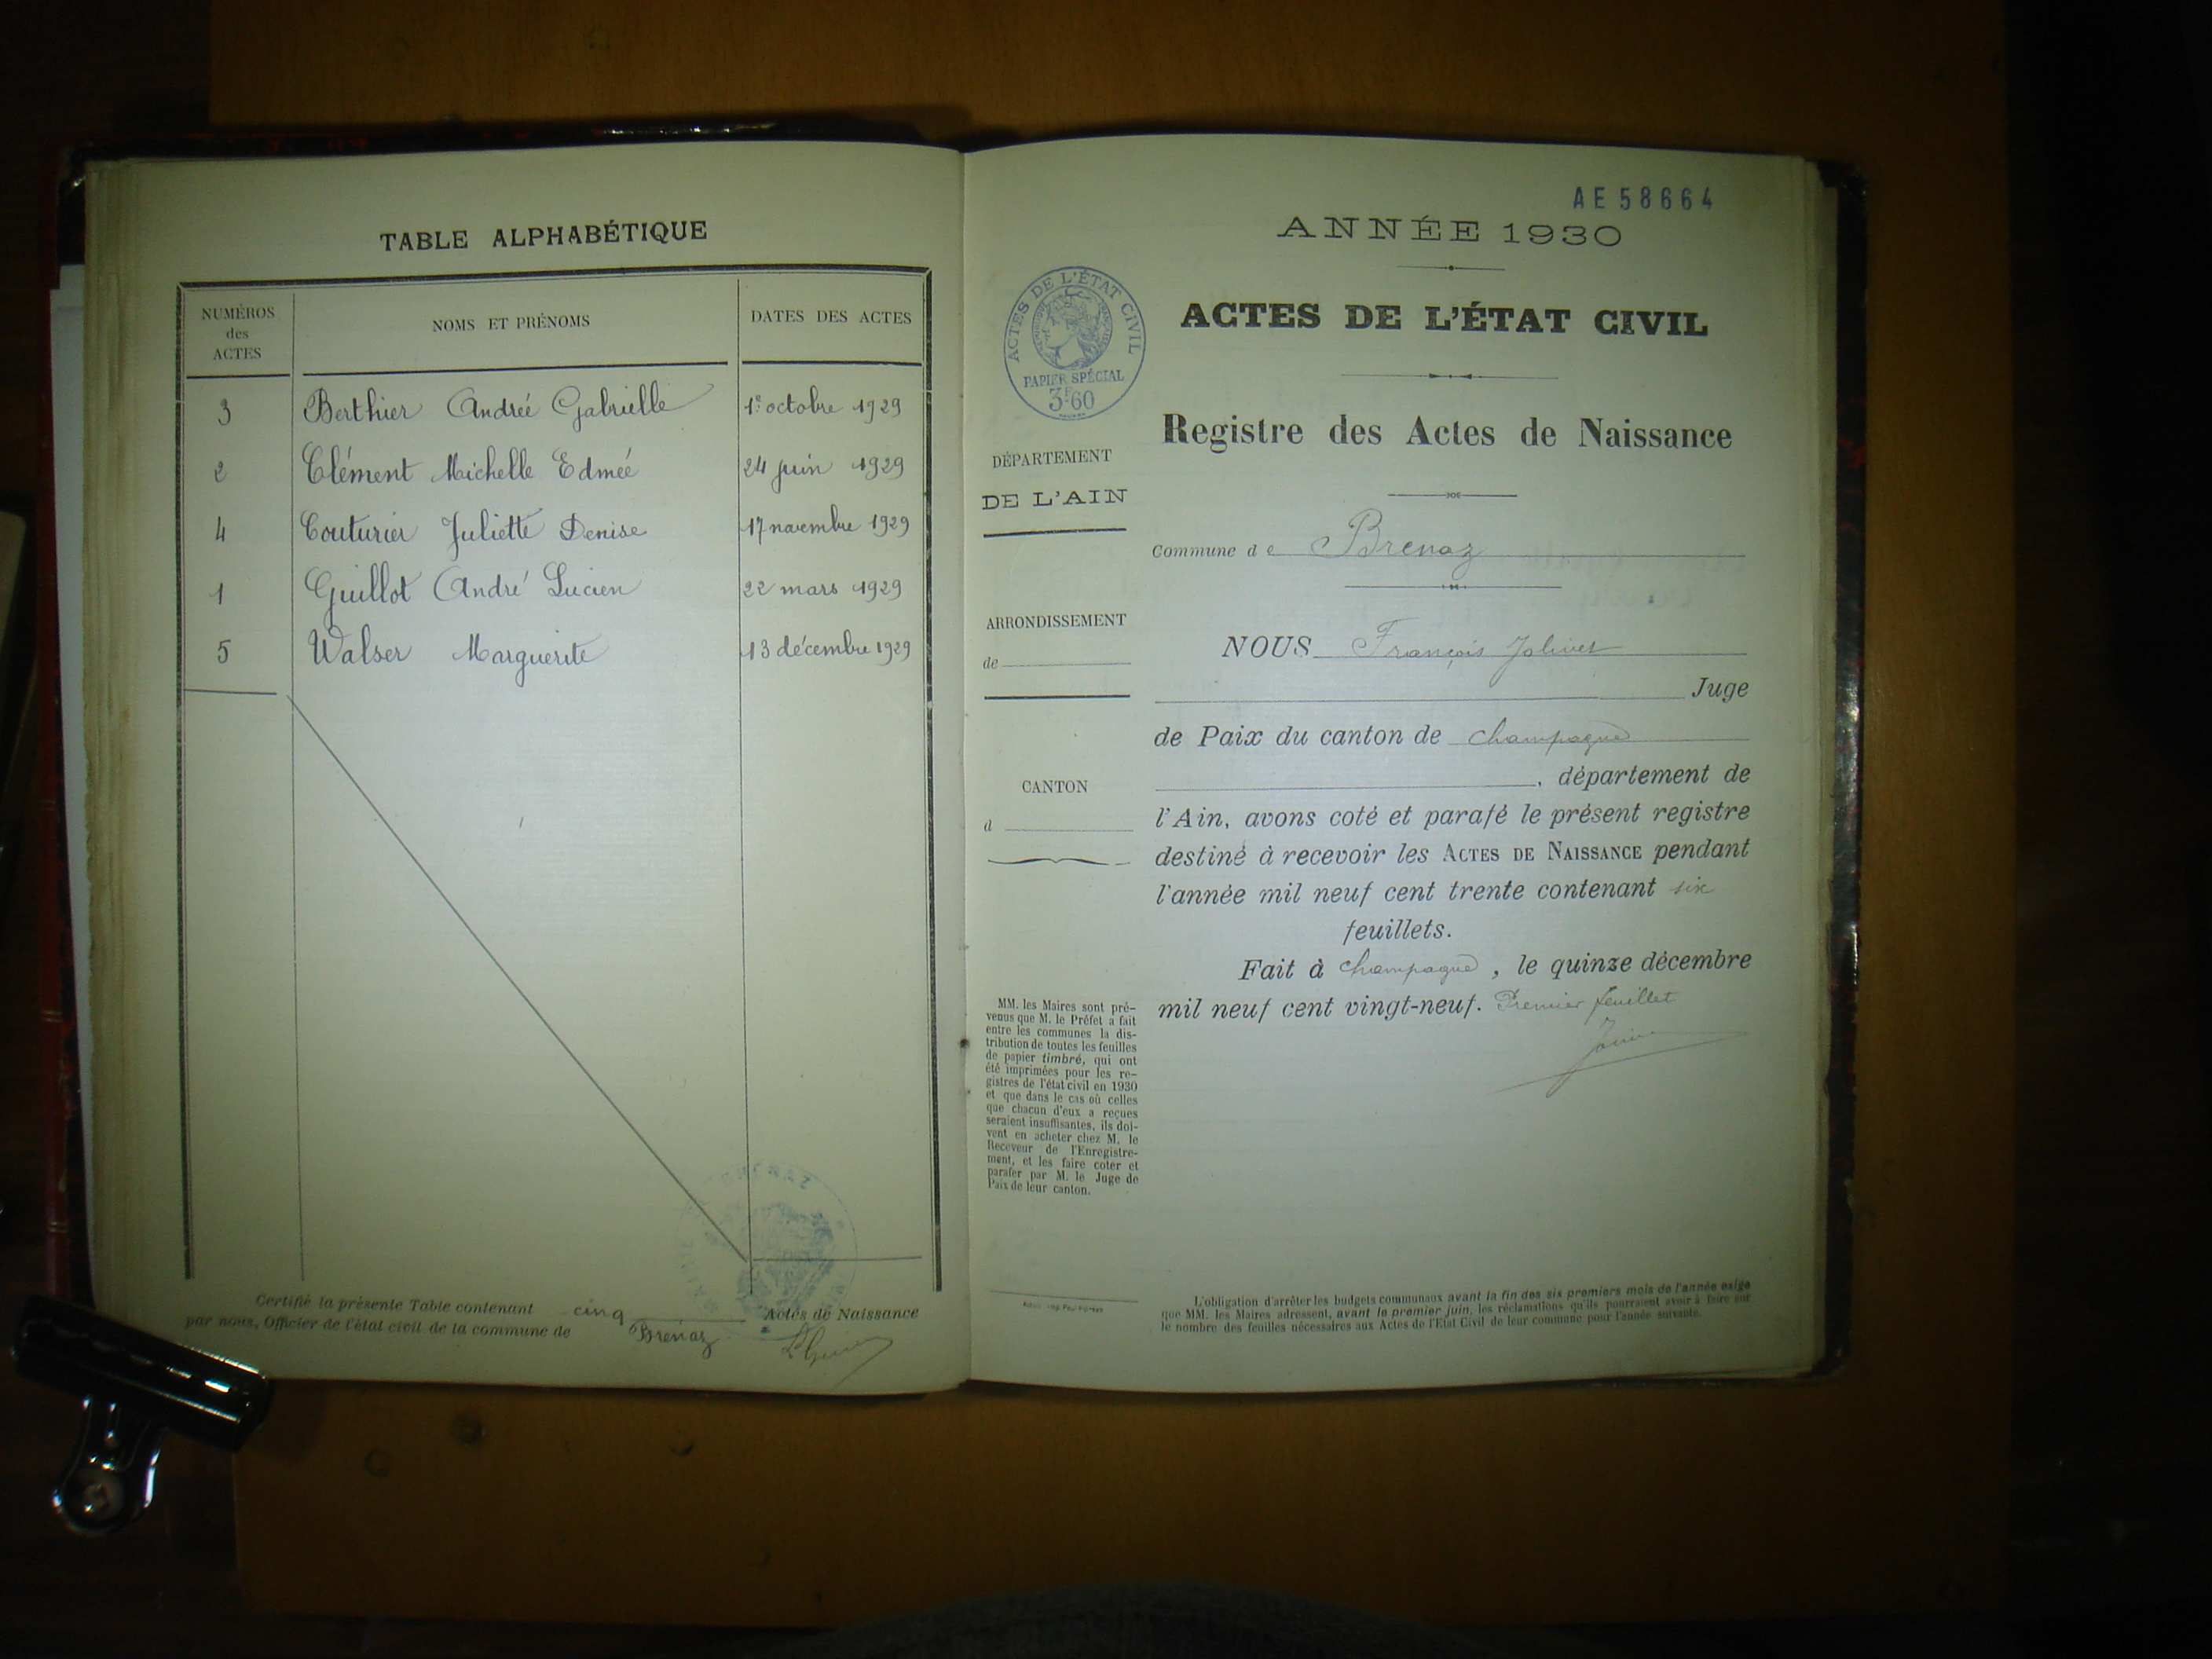 TABLE ALPHABÉTIQUE
NUMÉROS
des
ACTES
NOMS ET PRÉNOMS
DATES DES ACTES
3 Berthier Andrée Gabrielle 1er octobre 1929
2 Clément Michelle Edmée 24 juin 1929
4 Couturier Juliette Denise 17 novembre 1929
1 Guillot André Lucien 22 mars 1929
5 Walser Marguerite 13 décembre 1929
Certifié la présente Table contenant cinq Actes de Naissance
par nous, Officier de l'état civil de la commune de Brénaz
AE 58664
ANNÉE 1930
ACTES DE L'ÉTAT CIVIL
PAPIER SPÉCIAL
3F60
ACTES DE L'ÉTAT CIVIL
Registre des Actes de Naissance
DÉPARTEMENT
DE L'AIN
Commune de Brenaz
ARRONDISSEMENT
de
NOUS François Jolivet
Juge
de Paix du canton de Champagne
, département de
CANTON
d
l'Ain, avons coté et parafé le présent registre
destiné à recevoir les ACTES DE NAISSANCE pendant
l'année mil neuf cent trente contenant six
feuillets.
Fait à Champagne, le quinze décembre
mil neuf cent vingt-neuf. Premier feuillet
MM. les Maires sont pré-
venus que M. le Préfet a fait
entre les communes la dis-
tribution de toutes les feuilles
de papier timbré, qui ont
été imprimées pour les re-
gistres de l'état civil en 1930
et que dans le cas où celles
que chacun d'eux a reçues
seraient insuffisantes, ils doi-
vent en acheter chez M. le
Receveur de l'Enregistre-
ment, et les faire coter et
parafer par M. le Juge de
Paix de leur canton.
L'obligation d'arrêter les budgets communaux avant la fin des six premiers mois de l'année exige
que MM. les Maires adressent, avant le premier juin, les réclamations qu'ils pourraient avoir à faire sur
le nombre des feuilles nécessaires aux Actes de l'Etat Civil de leur commune pour l'année suivante.